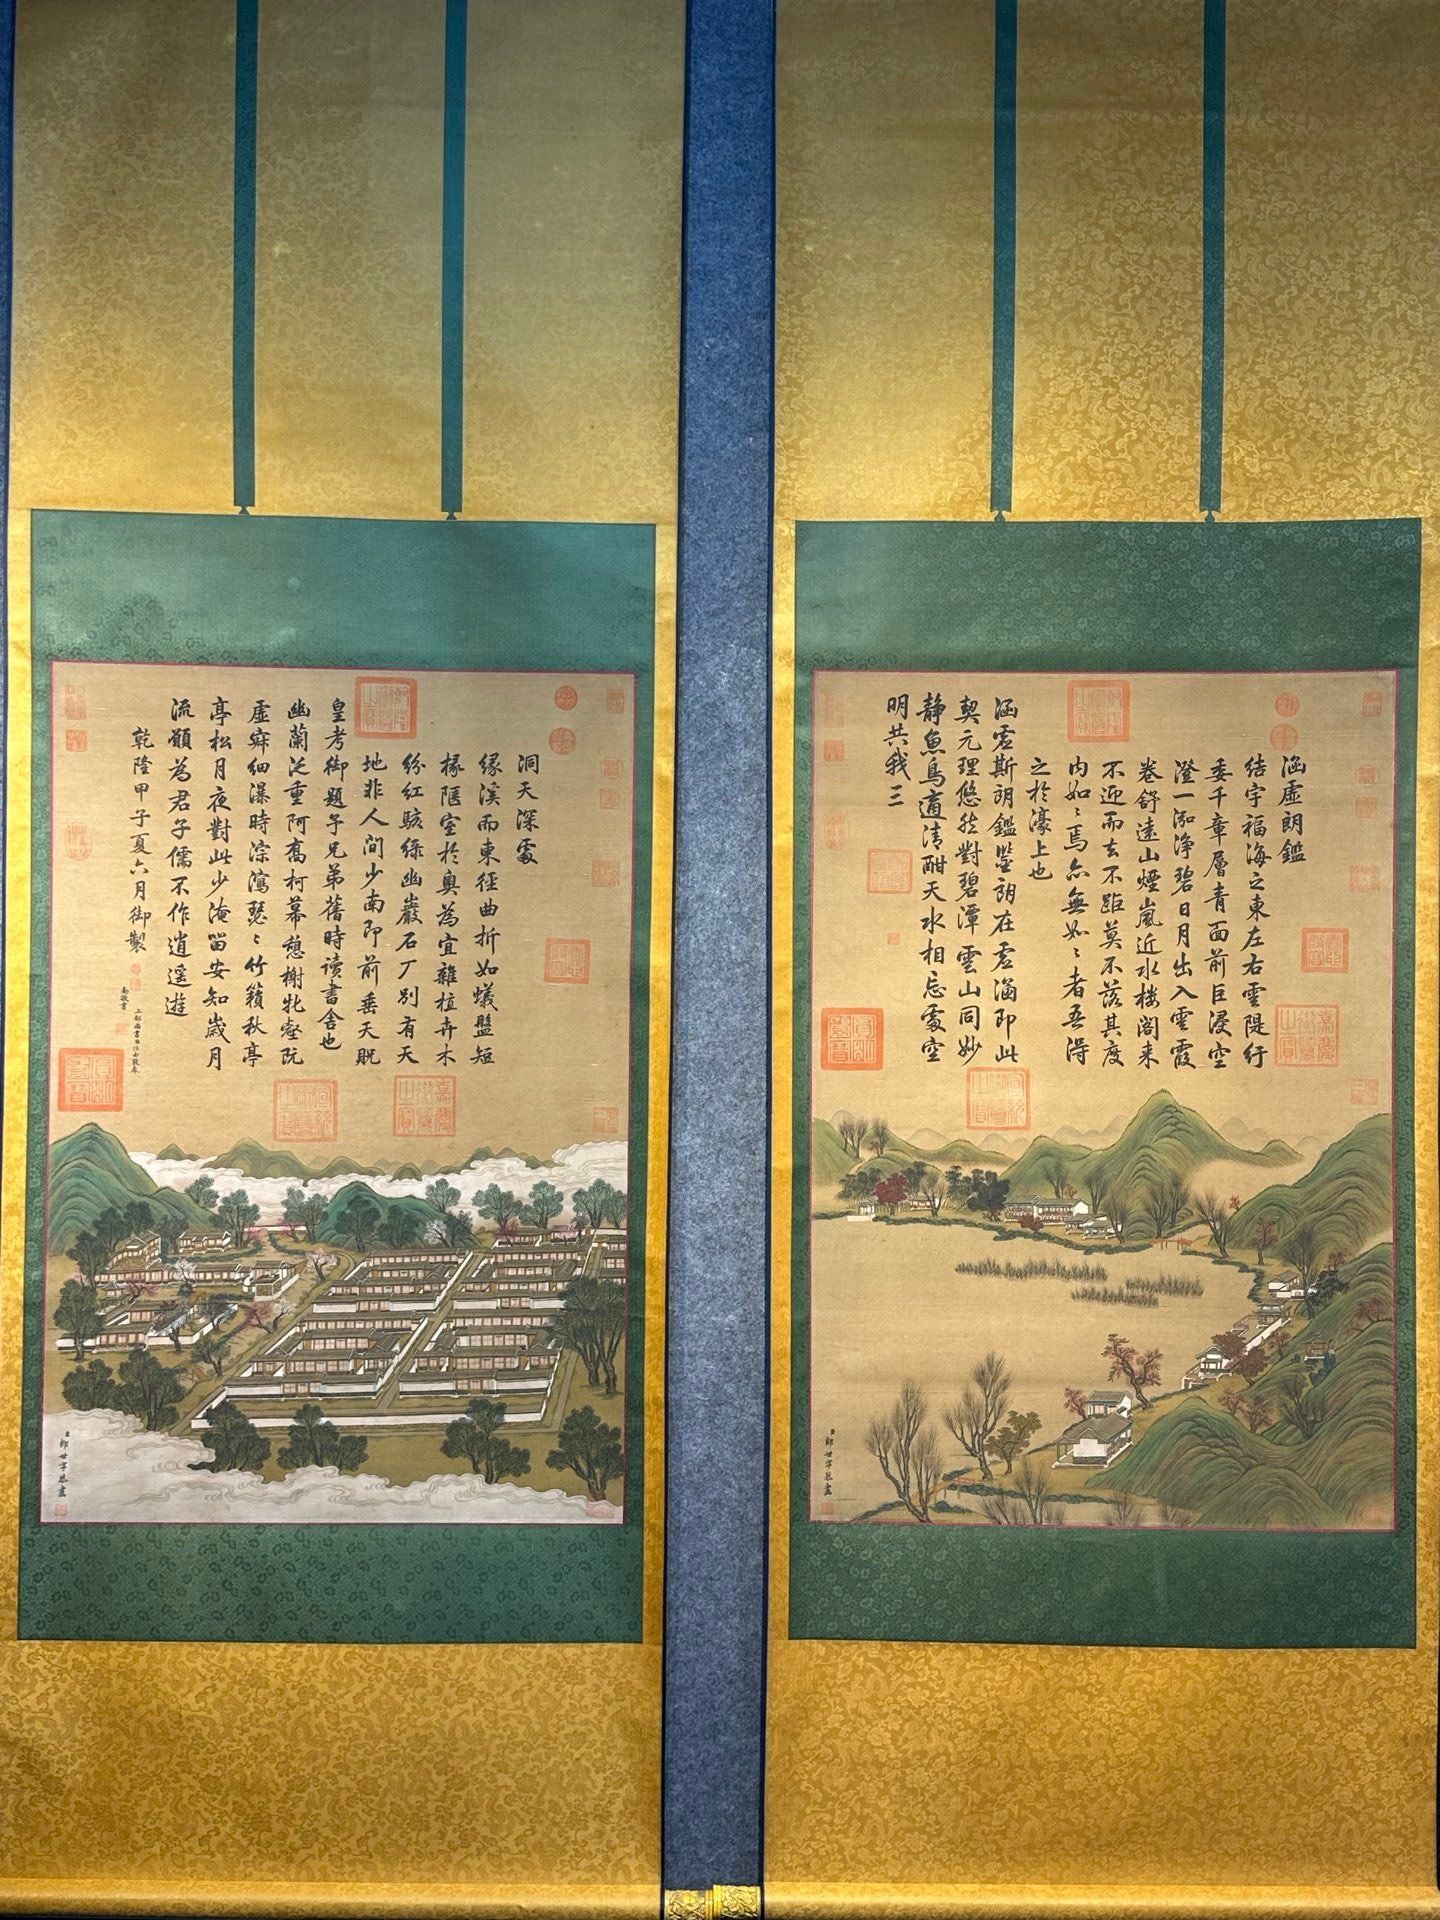 涵虛朗鑑
結宇福海之東左右雲隄紆
委千章層青面前巨浸空
澄一泓淨碧日月出入雲霞
卷舒遠山煙嵐近水樓閣来
不迎而去不距莫不落其度
内如〻焉亦無如〻者吾得
之於濠上也
涵虛斯朗鑑鑒朗在虛涵即此
契元理悠然對碧潭雲山同妙
静魚鳥適清酣天水相忘處空
明共我三
臣郎世寧恭畫
洞天深處
緣溪而東徑曲折如蟻盤短
椽陿室於奥為宜雜植卉木
紛紅駭綠幽巖石厂別有天
地非人間少南即前垂天貺
皇考御題予兄弟舊時讀書舍也
幽蘭泛重阿喬柯幕憩榭牝壑阮
虛寂細瀑時淙瀉瑟〻竹籟秋亭
亭松月夜對此少淹留安知歲月
流願為君子儒不作逍遥遊
乾隆甲子夏六月御製
工部尚書臣汪由敦奉
勅敬書
臣郎世寧恭畫